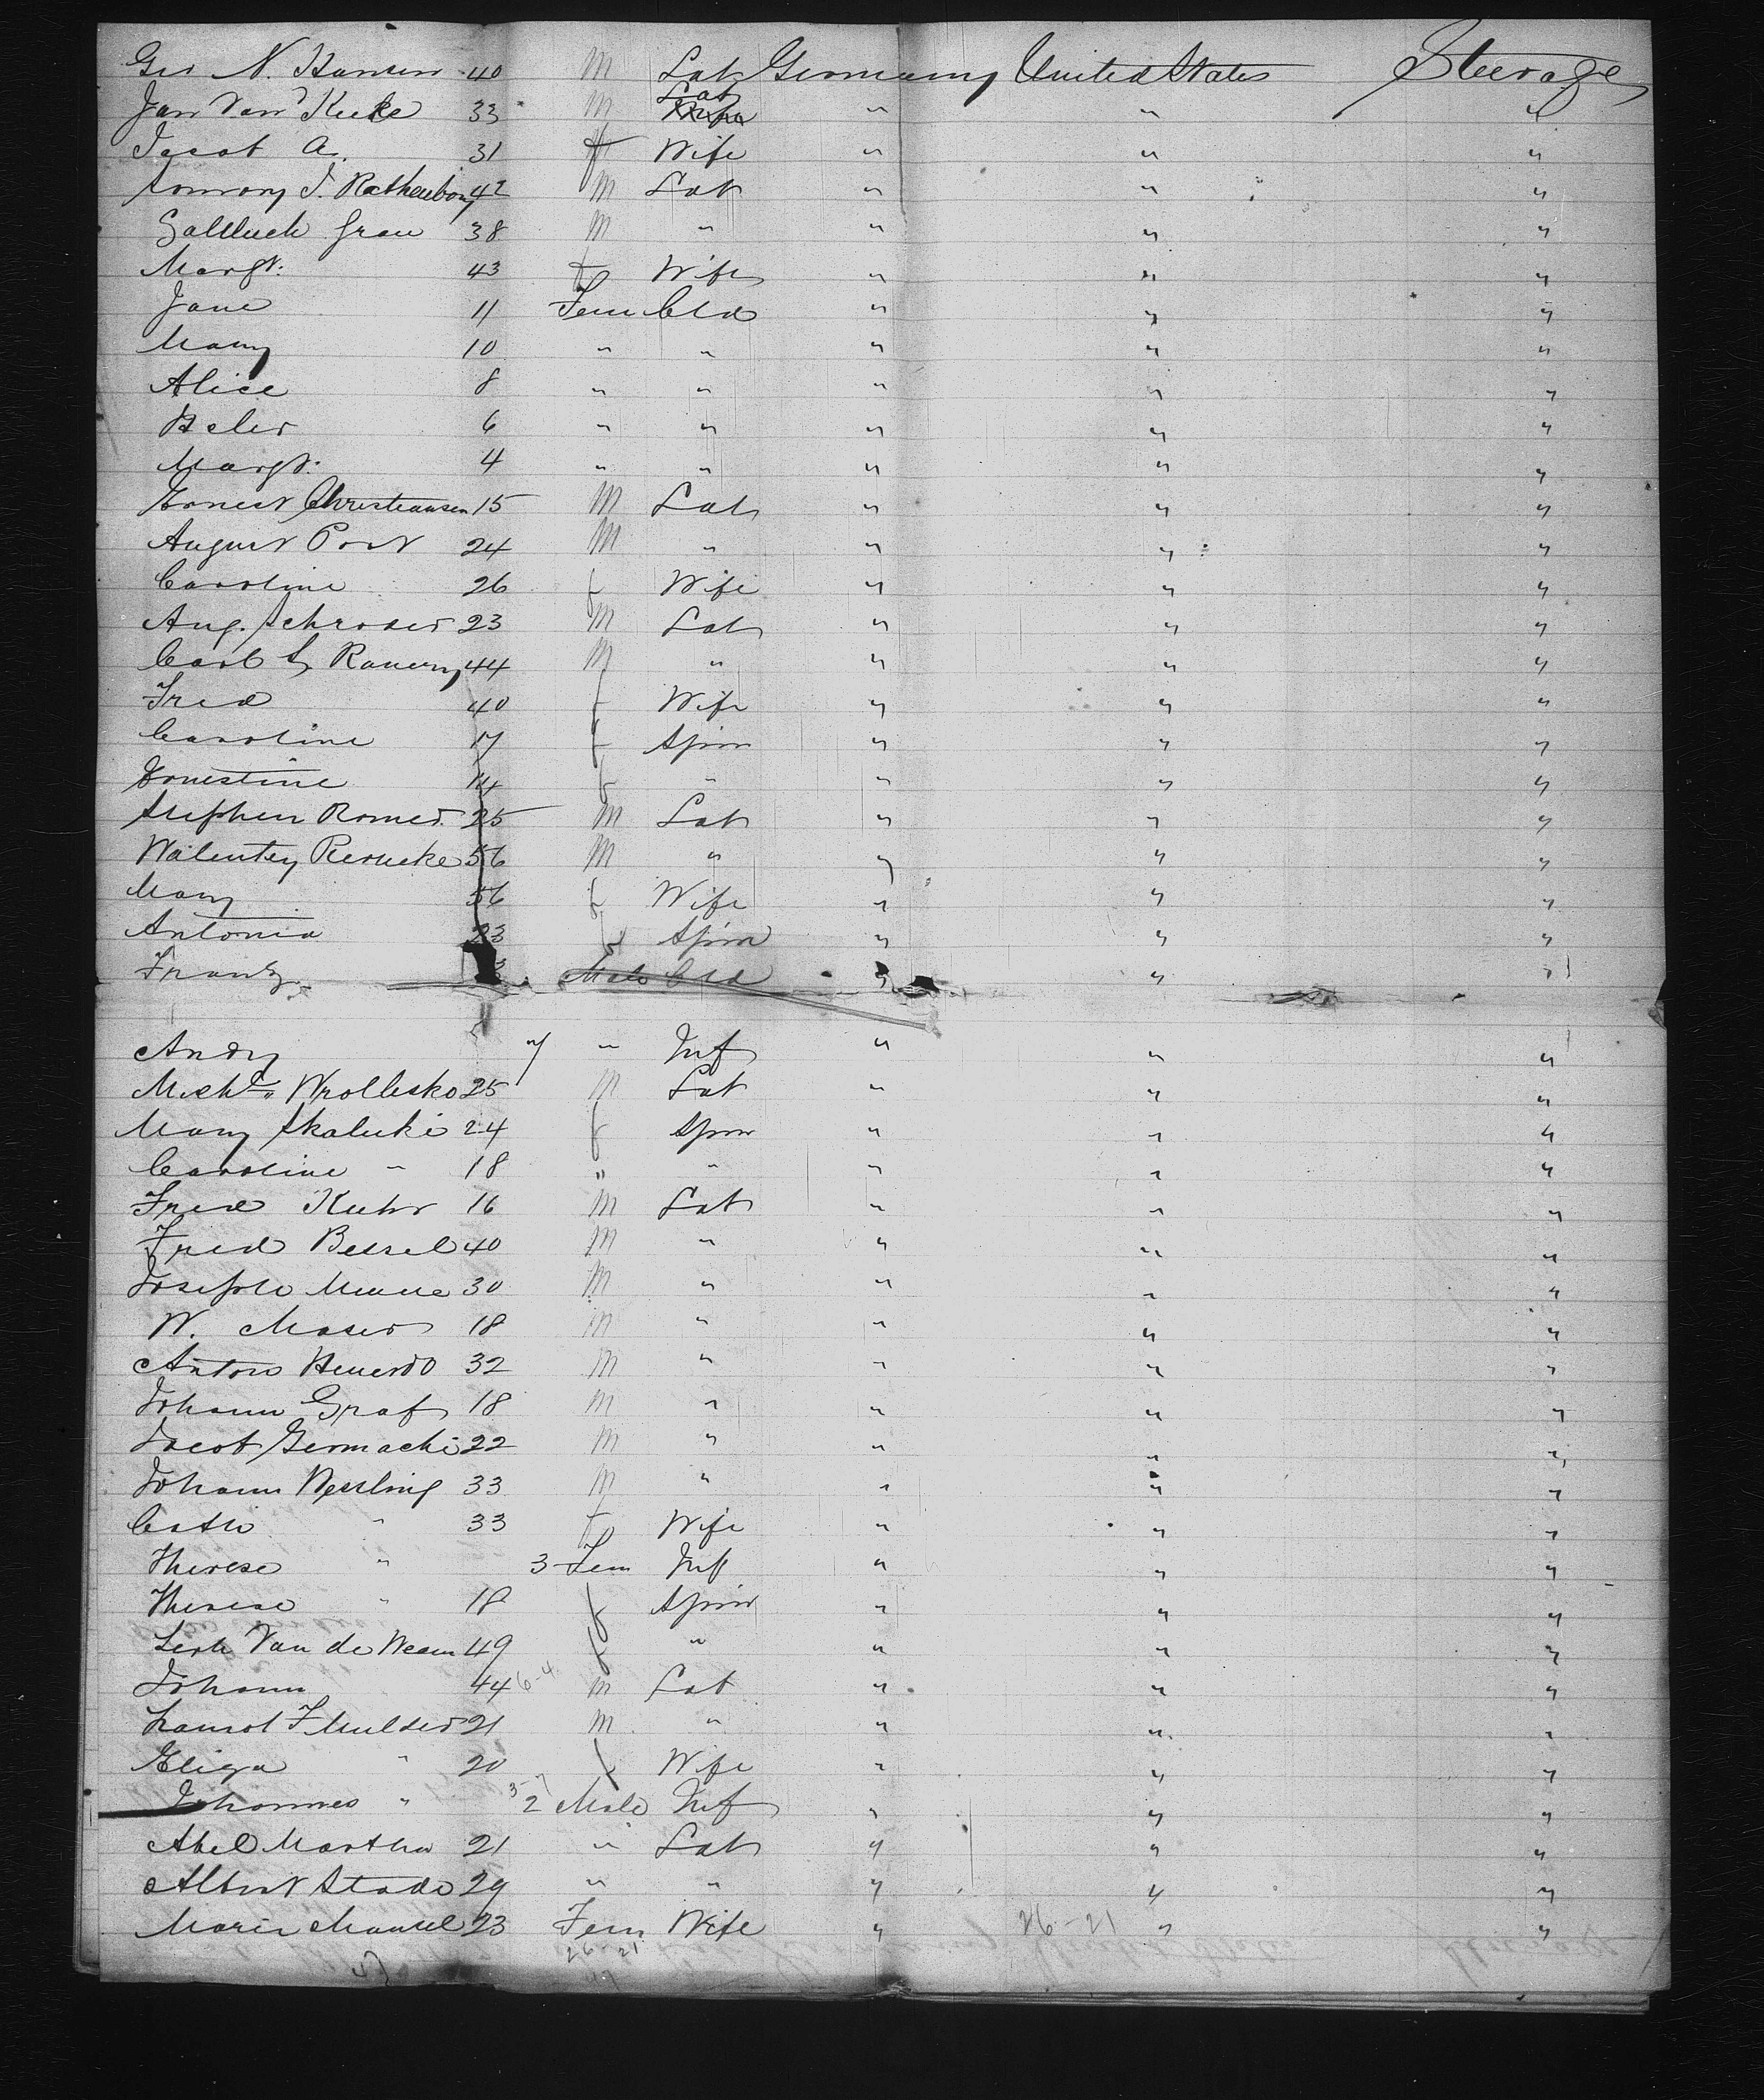 Geo N. Hansen 40 M Lab Germany United States Steerage
Jan Van Kuke 33 M Lab " " "
Jacob A. 31 f Wife " " "
J. Rathenbong 42 M Lab " " "
Grau 38 M " " " "
Margt. 43 f Wife " " "
Jane 11 Fem Cld " " "
Mary 10 " " " " "
Alice 8 " " " " "
Peler 6 " " " " "
Margt. 4 " " " " "
Ernest Christiansen 15 M Lab " " "
August Post 24 M " " " "
Caroline 26 f Wife " " "
Aug. Schroder 23 M Lab " " "
Carl 44 M " " " "
Fred 40 f Wife " " "
Caroline 17 f Spin " " "
Ernestine 14 f " " " "
Stephen Romer 25 M Lab " " "
Walenty Reineke 56 M " " " "
Mary 56 f Wife " " "
Antonia 23 f Spin " " "
Franz Male Cld " " "
Andy 7 " Inf " " "
Michl. Wrollesko 25 M Lab " " "
Mary Skaluki 24 f Spin " " "
Caroline " 18 " " " " "
Fred Kuhr 16 M Lab " " "
Fred Bessel 40 M " " " "
Joseph 30 M " " " "
W. Moser 18 M " " " "
Anton 32 M " " " "
Johann Graf 18 M " " " "
Jacob Germachi 22 M " " " "
Johann Wessling 33 M " " " "
Cath " 33 f Wife " " "
Therese " 3 Fem Inf " " "
Therese " 18 f Spin " " "
Van de Weem 49 f " " " "
Johann 44 6-4 M Lab " " "
F Mulder 21 M " " " "
Eliza " 20 f Wife " " "
Johannes " 2 3-7 Male Inf " " "
Abel Martha 21 " Lab " " "
Albert Stade 29 " " " " "
Marie Mansel 23 Fem Wife " 26-21 " "
26 21
47